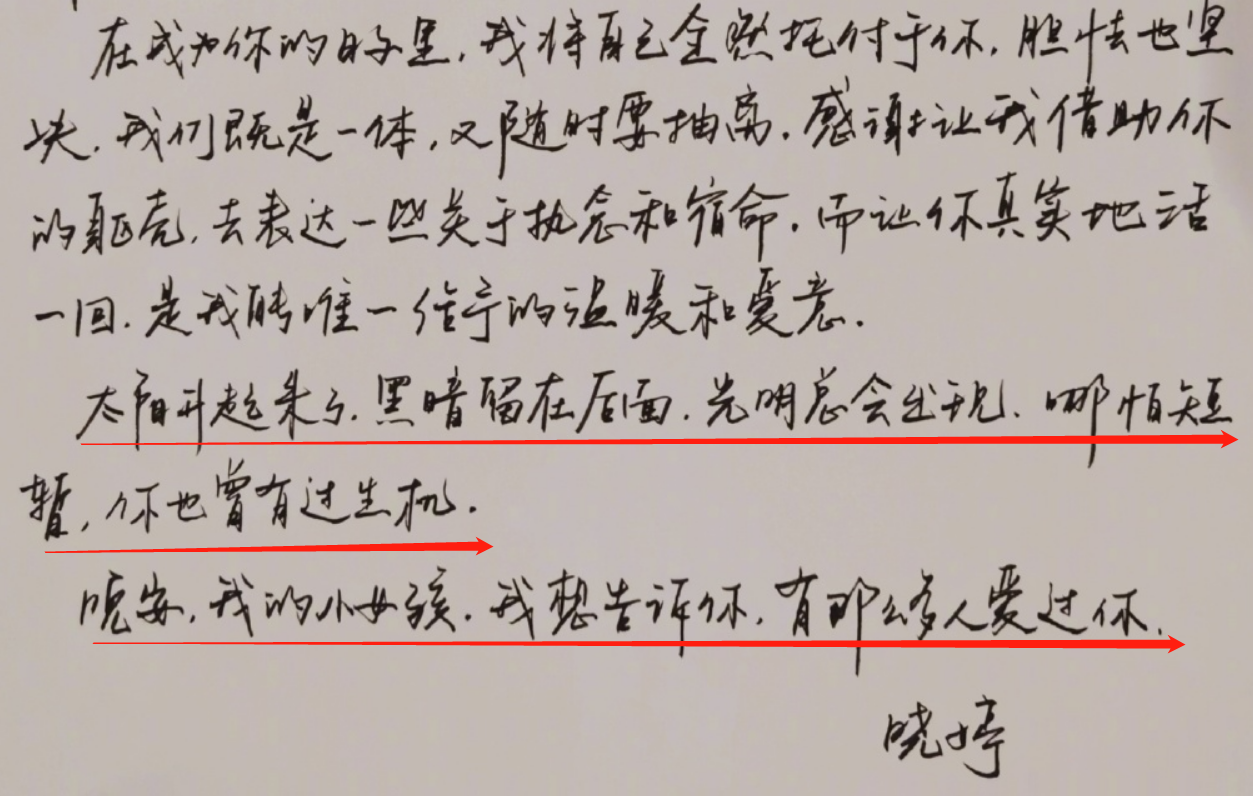 在成为你的日子里,我将自己全然托付于你,胆怯也坚
决,我们既是一体,又随时要抽离.感谢让我借助你
的躯壳,去表达一些关于执念和宿命.而让你真实地活
一回.是我聘唯一给予的温暖和爱意.
太阳升起来了.黑暗留在后面.光明总会出现.哪怕短
暂,你也曾有过生机.
晚安,我的小女孩.我想告诉你,有那么多人爱过你.
晓婷